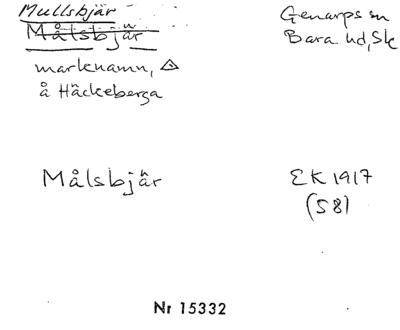 Mullsbjär
Målsbjär
Genarps sn
Bara hd, Sk
marknamn, △
å Häckeberga
Målsbjär
EK 1917
(S8)
Nr 15332